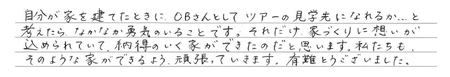 自分が家を建てたときに、OBさんとしてツアーの見学先になれるか…と
考えたら、なかなか勇気のいることです。それだけ、家づくりに想いが
込められていて、納得のいく家ができたのだと思います。私たちも、
そのような家ができるよう、頑張っていきます。有難とうございました。